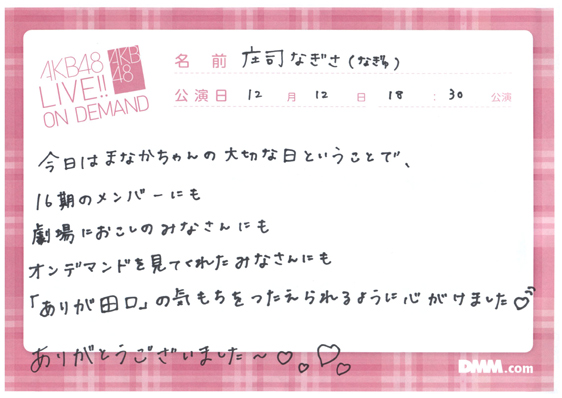 AKB48
LIVE!!
ON DEMAND
AKB
48
名前 庄司なぎさ(なぎゅ)
公演日 12月12日 18:30 公演
今日はまなかちゃんの大切な日ということで、
16期のメンバーにも
劇場におこしのみなさんにも
オンデマンドを見てくれたみなさんにも
「ありが田口」の気もちをつたえられるように心がけました♡
ありがとうございました〜♡。♡♡
DMM.com